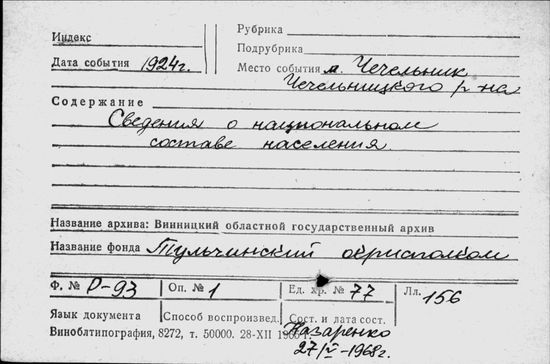 Индекс
Рубрика
Подрубрика
Дата события 1924г.
Место события м. Чечельник
Чечельницкого р-на
Содержание
Сведения о национальном
составе населения
Название архива: Винницкий областной государственный архив
Название фонда Тульчинский окрисполком
Ф. № Р-93 Оп. № 1 Ед. хр. № 77 Лл. 156
Язык документа Способ воспроизвед. Сост. и дата сост.
Виноблтипография, 8272, т. 50000. 28-XII
Назаренко
27/V-1968г.